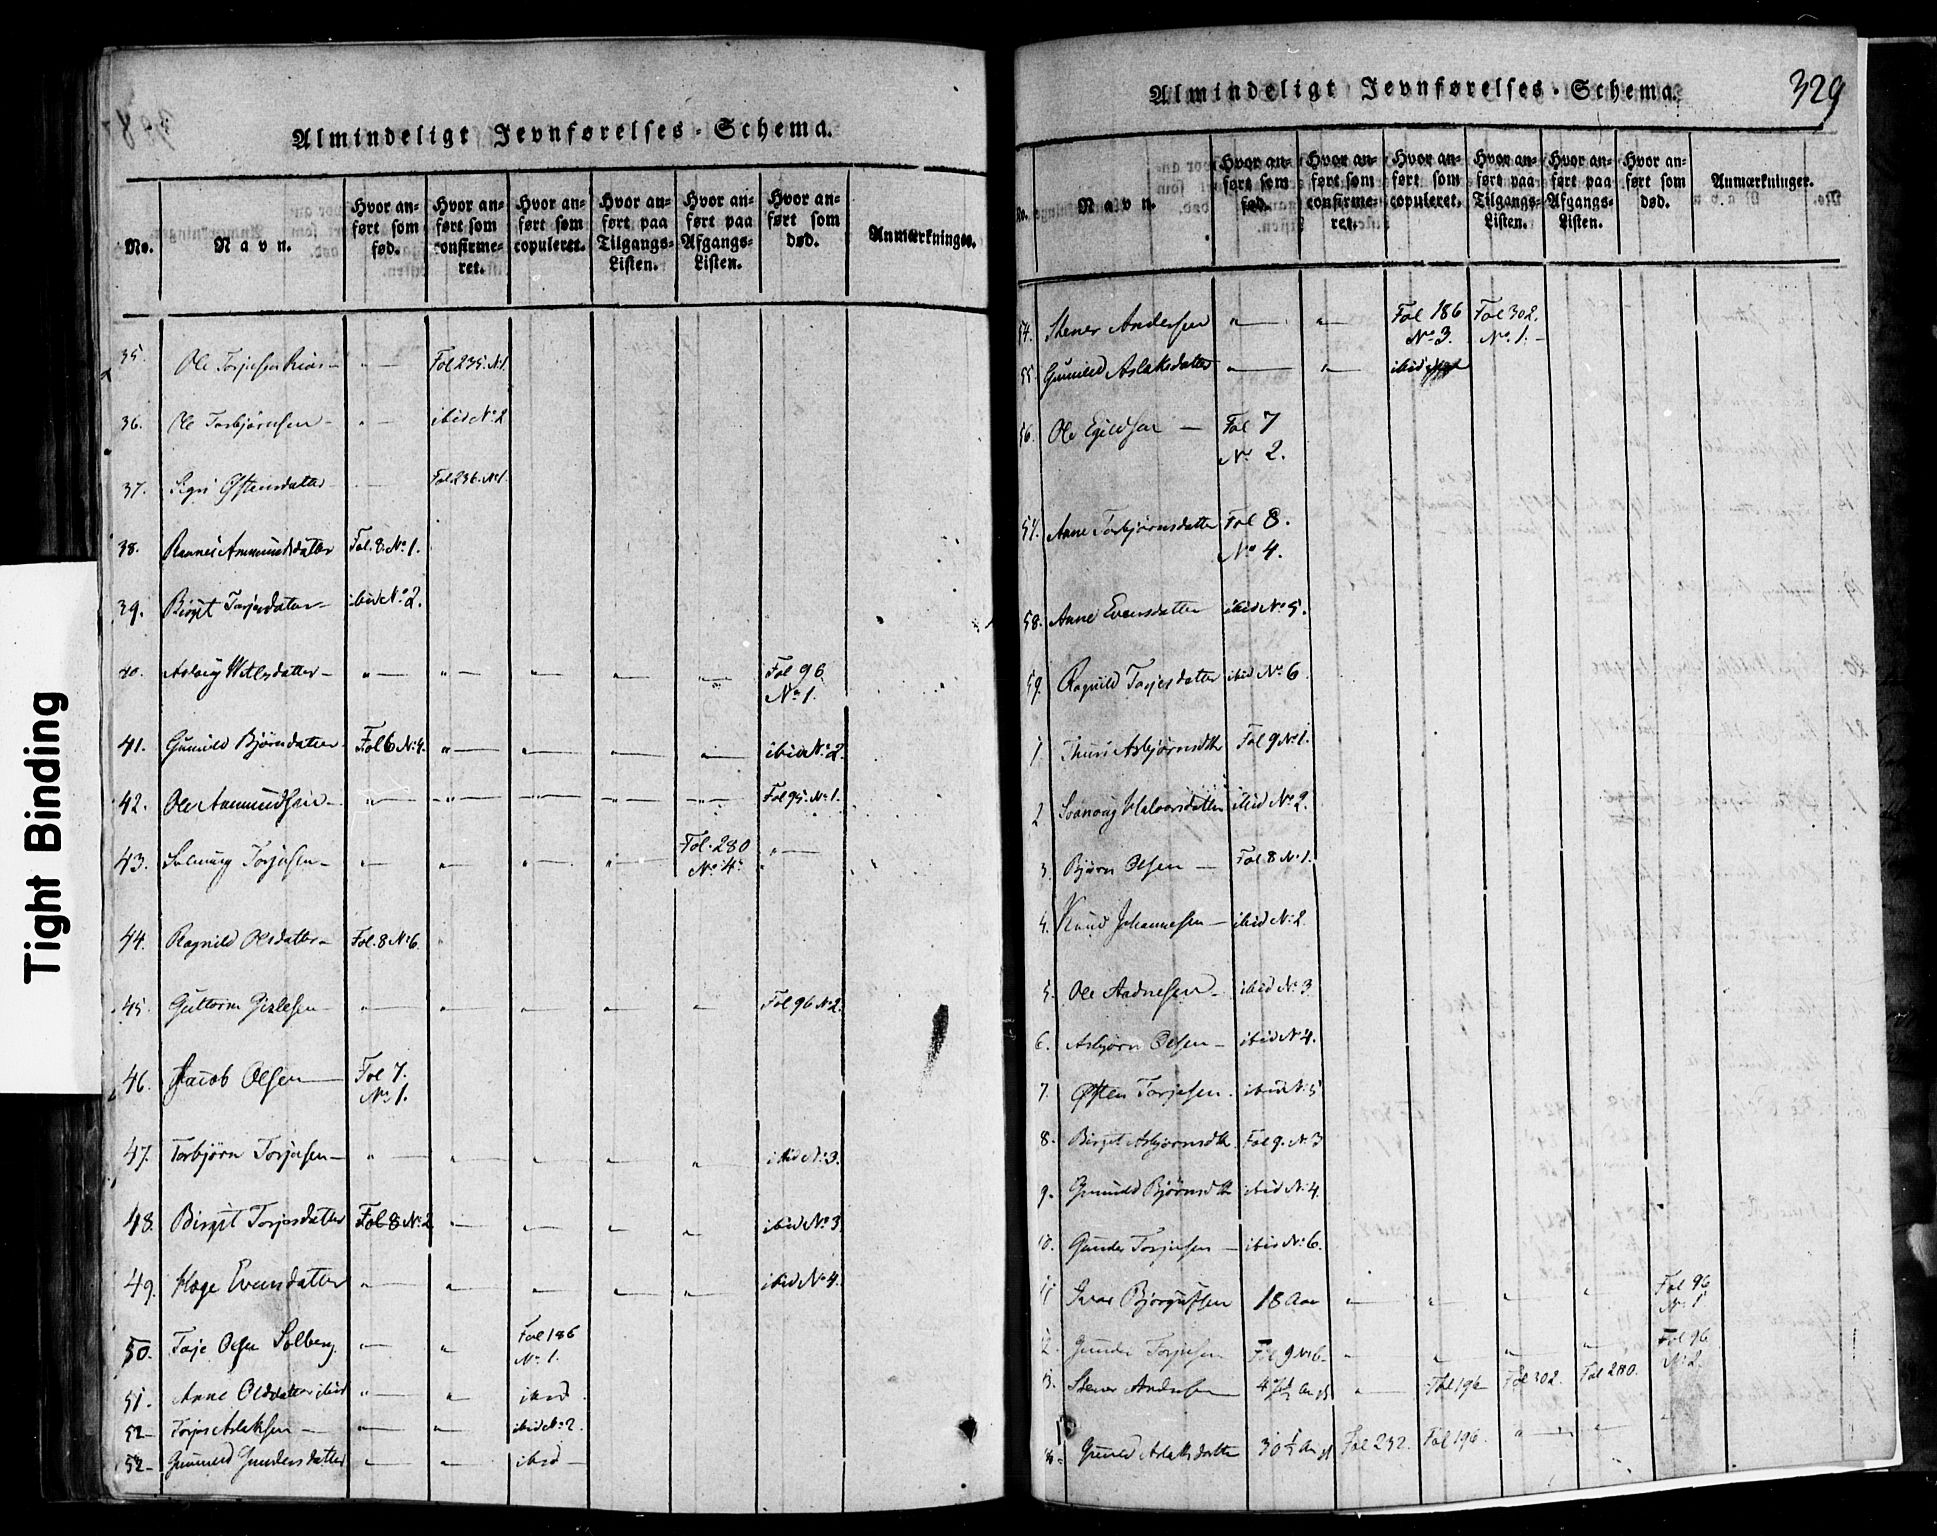 Tight Binding
Almindeligt Jevnførelses-Schema.
No. Navn. Hvor anført som fød. Hvor anført som confirmeret. Hvor anført som copuleret. Hvor anført paa Tilgangs-Listen. Hvor anført paa Afgangs-Listen. Hvor anført som død. Anmærkninger.
35. Ole Torjusen " — Fol 235. No 1.
36. Ole Torbjørnsen — " — ibid No 2
37. Sigri Østensdatter " — Fol 236. No 1.
38. Amundsdatter Fol. 8. No 1.
39. Birgit Torjesdatter — ibid No 2.
40. Aslaug — " — " — " — " — " — Fol 96 No 1.
41. Gunild Bjørnsdatter Fol 6 No 4. " — " — " — " — ibid No 2.
42. Ole Aamundsen — " — " — " — " — " — Fol 95. No 1.
43. Torjusen — " — " — " — " — Fol. 280 No 4. " —
44. Ragnild Olsdatter — Fol. 8 No 6.
45. Guttorm Gislesen — " — " — " — " — " — Fol 96 No 2.
46. Jacob Olsen — Fol 7. No 1.
47. Torbjørn Torjusen — " — " — " — " — " — ibid No 3.
48. Birgit Torjesdatter Fol 8 No 2 " — " — " — " — ibid No 3
49. Hage Evensdatter " — " — " — " — " — ibid No 4.
50. Taje Olsen Solberg " — " Fol 186 No 1.
51. Anne Olsdatter ibid " — " ibid
52 — Torjus Aslaksen — " — " — ibid No 2.
52 — Gunnild Gundersdatter " — " — ibid —
329
Almindeligt Jevnførelses-Schema.
No. Navn. Hvor anført som fød. Hvor anført som confirmeret. Hvor anført som copuleret. Hvor anført paa Tilgangs-Listen. Hvor anført paa Afgangs-Listen. Hvor anført som død. Anmærkninger.
54. Stener Andersen " — " — Fol 186 No 3. Fol 302. No 1. —
55. Gunild Aslaksdatter " — " — ibid
56. Ole Egildsen — Fol 7 No 2.
57. Anne Torbjørnsdatter Fol 8. No 4.
58. Anne Evensdatter ibid No 5.
59. Ragnild Torjesdatter ibid No 6
1. Thuri Asbjørnsdtr Fol 9 No 1.
2 Svanaug Halvorsdatter ibid No 2.
3. Bjørn Olsen — Fol 8 No 1.
4. Knud Johannesen — ibid No 2
5. Ole Aadnesen — ibid No 3
6. Asbjørn Olsen — ibid No 4.
7. Østen Torjesen. ibid No 5
8. Birgit Asbjørnsdtr Fol 9. No 3
9. Gunild Bjørnsdtr ibid No 4
10. Gunder Torjusen — ibid No 6.
11 Ivar Bjorgufsen 18 Aar " — " — " — " — Fol 96 No 1
12. Gunder Torjusen Fol 9 No 6 — " — " — " — " — Fol 96 No 2.
13. Stener Andersen " — Fol 196 Fol 302. Fol 280.
Gunild Aslaksdatter 30 ½ Fol 232. Fol 196. " — " — " —